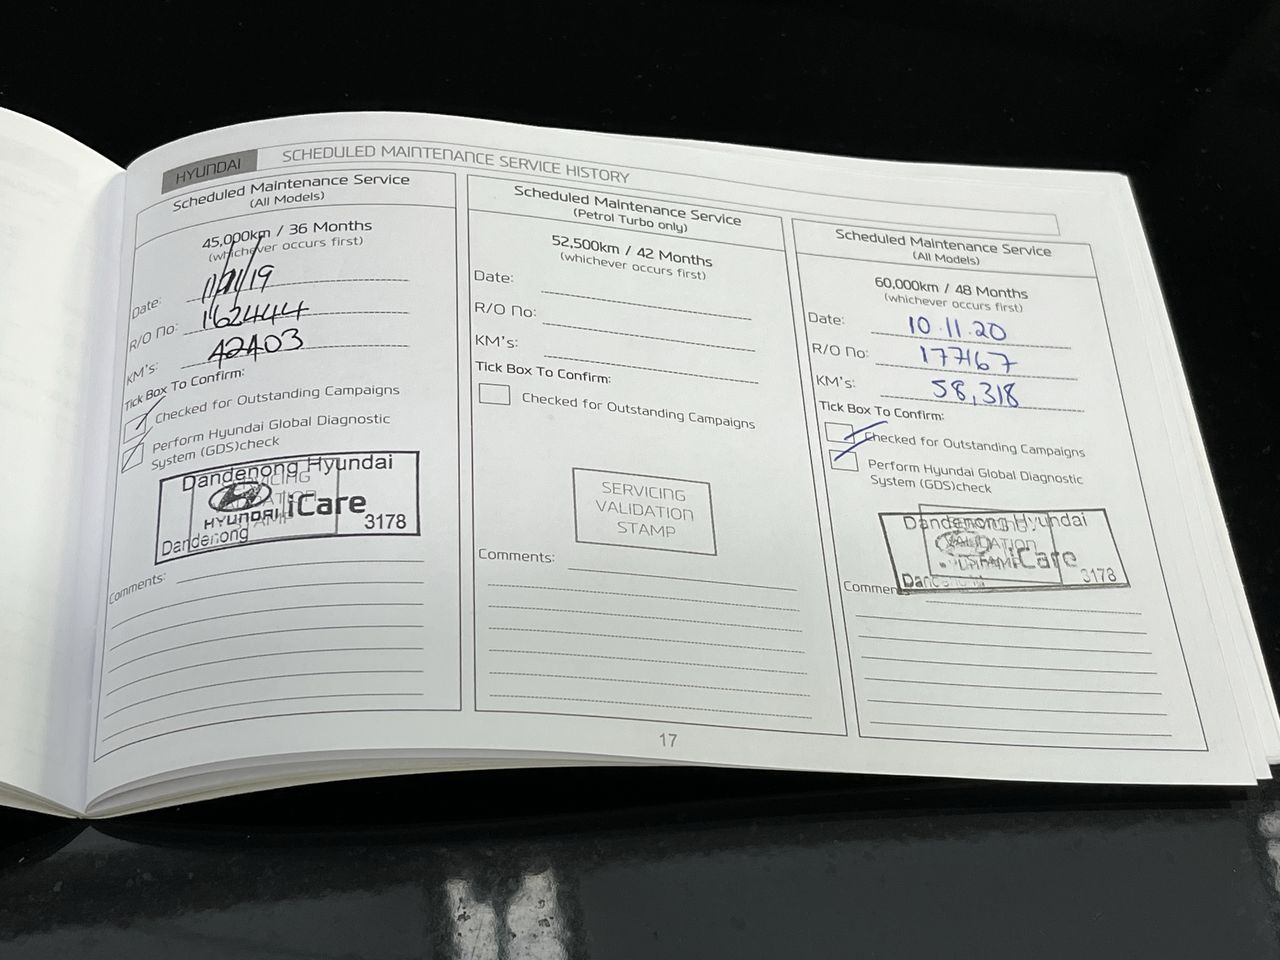 HYUNDAI SCHEDULED MAINTENANCE SERVICE HISTORY
Scheduled Maintenance Service
(All Models)
45,000km / 36 Months
(whichever occurs first)
Date: /19
R/O No: 162444
KM's: 42403
Tick Box To Confirm:
Checked for Outstanding Campaigns
Perform Hyundai Global Diagnostic
System (GDS)check
Dandenong Hyundai
HYUNDAI iCare
3178
Dandenong
Comments:
Scheduled Maintenance Service
(Petrol Turbo only)
52,500km / 42 Months
(whichever occurs first)
Date:
R/O No:
KM's:
Tick Box To Confirm:
Checked for Outstanding Campaigns
SERVICING
VALIDATION
STAMP
Comments:
Scheduled Maintenance Service
(All Models)
60,000km / 48 Months
(whichever occurs first)
Date: 10.11.20
R/O No: 177167
KM's: 58,318
Tick Box To Confirm:
Checked for Outstanding Campaigns
Perform Hyundai Global Diagnostic
System (GDS)check
Dandenong Hyundai
iCare
3178
17